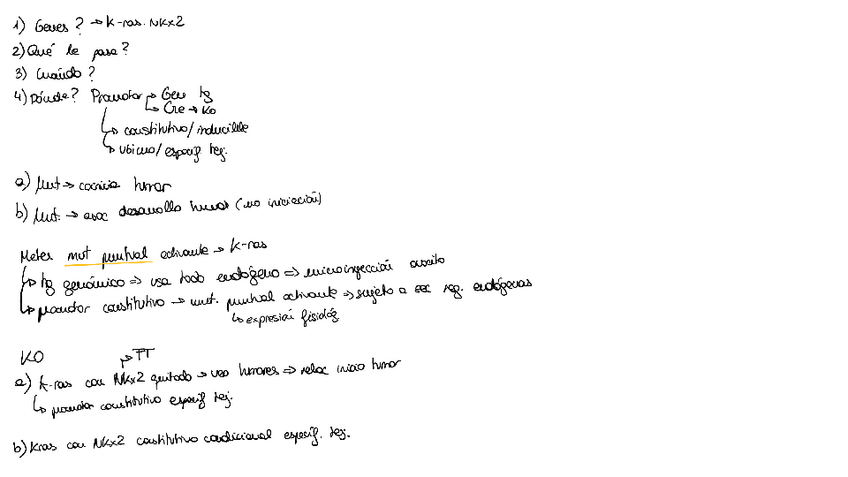 1) Genes? → k-ras. NKx2
2) Qué le pasa?
3) Cuándo?
4) Dónde? Promotor → Gen tg
→ Cre → KO
→ constitutivo/inducible
→ ubicuo/especif tej.
a) Mut → inicia tumor
b) Mut. → desarrollo tumor (no iniciación)
Meter mut puntual activante → k-ras
→ tg genómico ⇒ usa todo endógeno ⇒ microinyección
→ promotor constitutivo → mut. puntual activante ⇒ sujeto a sec reg. endógenas
→ expresión fisiológ
KO
→ TT
a) k-ras con NKx2 quitado → veo tumores ⇒ relac inicio tumor
→ promotor constitutivo especif tej.
b) Kras con NKx2 constitutivo condicional especif. tej.